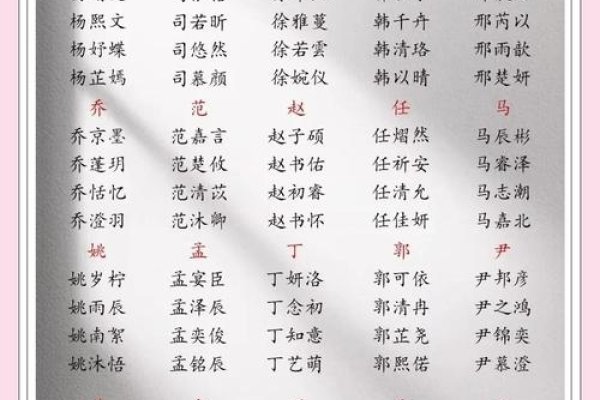 杨熙文 司若昕 徐雅蔓 韩千卉 邢芮以
杨妤蝶 司悠然 徐若雲 韩清珞 邢雨歆
杨芷嫣 司慕颜 徐婉仪 韩以晴 邢楚妍
乔 范 赵 任 马
乔京墨 范嘉言 赵子硕 任熠然 马辰彬
乔蓬玥 范楚攸 赵书佑 任祈安 马睿泽
乔恬忆 范清苡 赵初睿 任清允 马志潮
乔澄羽 范沐卿 赵书怀 任佳妍 马嘉北
姚 孟 丁 郭 尹
姚岁柠 孟宴臣 丁妍洛 郭可依 尹邦彦
姚雨辰 孟泽辰 丁念初 郭清冉 尹之鸿
姚南絮 孟奕俊 丁知意 郭芷尧 尹锦奕
姚沐悟 孟铭辰 丁艺萌 郭熙偌 尹慕澄